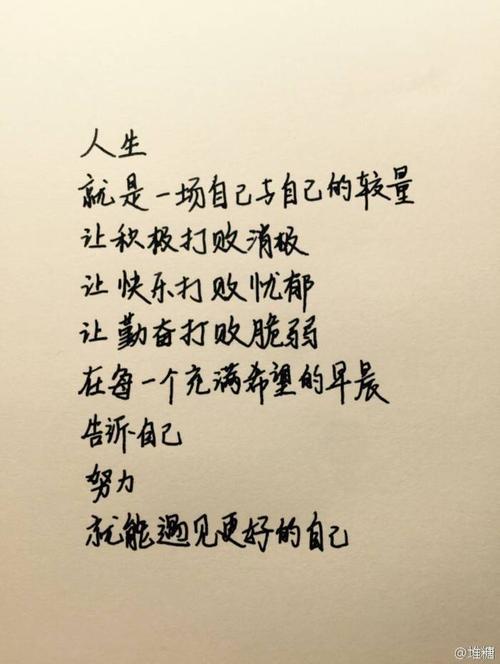 人生
就是一场自己与自己的较量
让积极打败消极
让快乐打败忧郁
让勤奋打败脆弱
在每一个充满希望的早晨
告诉自己
努力
就能遇见更好的自己
@堆糖